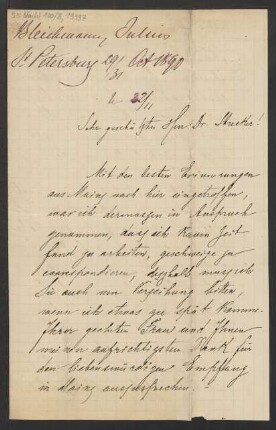 Bleichmann, Julius
St Petersburg 29/31 Oct 1890
b 22/11
Sehr geehrtester Herr Dr. Strecker!
Mit den besten Erinnerungen
aus Mainz nach hier eingetroffen,
war ich dermassen in Anspruch
genommen, dass ich kaum Zeit
fand zu arbeiten, geschweige zu
correspondiren, deshalb muss ich
Sie auch um Verzeihung bitten,
wenn ich etwas zu spät komme
Ihrer geehrten Frau und Ihnen
meinen aufrichtigsten Dank für
den liebenswürdigen Empfang
in Mainz auszusprechen.